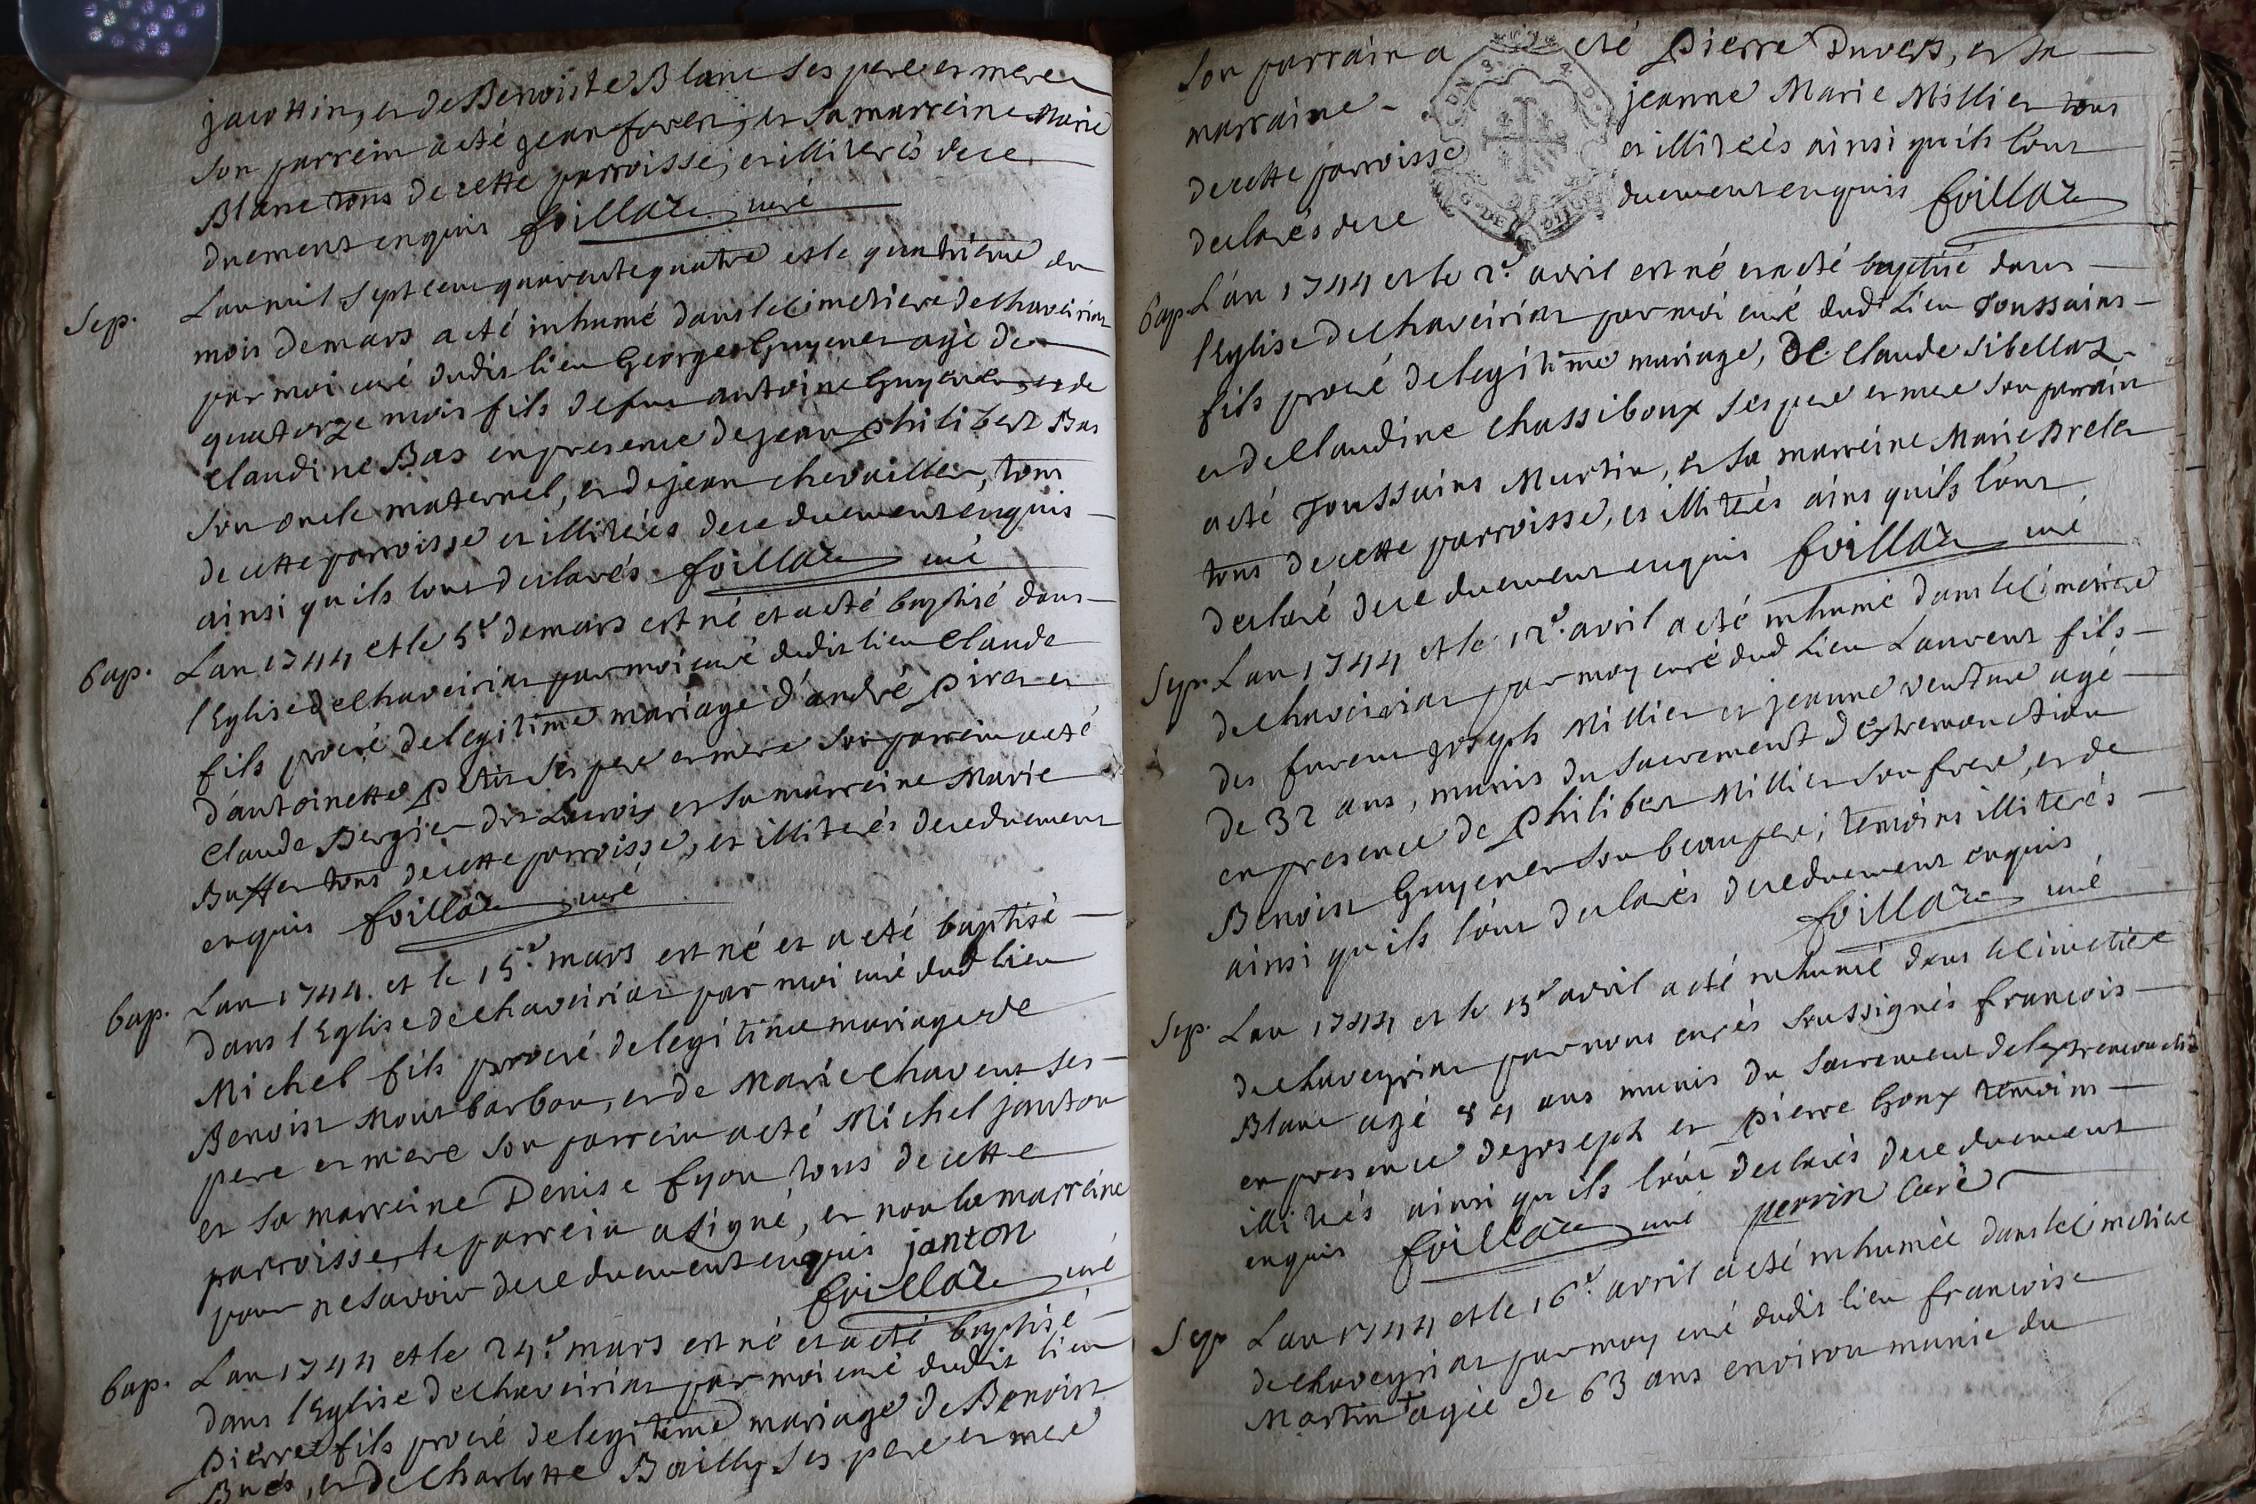 jacottin, et de Benoiste Blanc ses pere et mere
son parrein a eté jean forest, et sa marreine Marie
Blanc tous de cette parroisse, et illiterés de ce
duement enquis foillaz curé
Sep. L'an mil sept cent quarante quatre et le quatrieme du
mois de mars a eté inhumé dans le cimetiere de chaveiriat
par moi curé dudit lieu George Guyenet agé de
quatorze mois fils de feu antoine Guyenet et de
Claudine Bas en presence de jean philibert Bas
son oncle maternel, et de jean chevaillier, tous
de cette parroisse et illiterés de ce duement enquis
ainsi qu'ils l'ont declarés foillaz curé
bap. L'an 1744 et le 5e de mars est né et a eté baptisé dans
l'Eglise de chaveiriat par moi curé dudit lieu Claude
fils procré de legitime mariage d'andré Piret et
d'antoinette Petit ses pere et mere son parrein a eté
Claude Bergier dit Lacroix et sa marreine Marie
Buffet tous de cette parroisse, et illiterés de ce duement
enquis foillaz curé
bap. L'an 1744. et le 15e mars est né et a eté baptisé
dans l'Eglise de chaveiriat par moi curé dud lieu
Michel fils procré de legitime mariage de
Benoist Montbarbon, et de Marie Chavent ses
pere et mere son parrein a eté Michel janton
et sa marreine Denise fyon tous de cette
parroisse, le parrein a signé, et non la marreine
pour ne savoir de ce duement enquis janton
foillaz curé
bap. L'an 1744 et le 24e mars est né et a eté baptisé
dans l'Eglise de chaveiriat par moi curé dudit lieu
Pierre fils procré de legitime mariage de Benoist
et de Charlotte Bailly ses pere et mere
son parrain a eté Pierre Duvert, et sa
marraine jeanne Marie Millier tous
de cette parroisse et illiterés ainsi qu'ils l'ont
declarés de ce duement enquis foillaz
bap. L'an 1744 et le 2e avril est né et a eté baptisé dans
l'Eglise de chaveiriat par moi curé dud Lieu Toussains
fils procré de legitime mariage, de Claude Sibellaz
et de Claudine Chassiboux ses pere et mere son parrain
a eté Toussains Murtin, et sa marreine Marie Brelet
tous de cette parroisse, et illiterés ains qu'ils l'ont
declaré de ce duement enquis foillaz curé
Sep. L'an 1744 et le 12e. avril a eté inhumé dans le cimetiere
de chaveiriat par moy curé dud Lieu Laurent fils
des furent joseph Millier et jeanne venture agé
de 32 ans, munis du sacrement d'extremonction
en presence de Philibert Millier son frere, et de
Benoist Guyenet son beaupere; temoins illiterés
ainsi qu'ils l'ont declarés de ce duement enquis
foillaz curé
Sep. L'an 1744 et le 15e avril a eté inhumé dans le cimetiere
de chaveyriat par nous curés soussignés francois
Blanc agé 84 ans munis du sacrement de lextremonction
en presence de joseph et pierre Goux temoins
illiterés ainsi qu'ils l'ont declarés de ce duement
enquis foillaz curé perrin Curé
Sep L'an 1744 et le 16e. avril a eté inhumée dans le cimetiere
de chaveyriat par moy curé dudit lieu francoise
Martin agée de 63 ans environ munie du